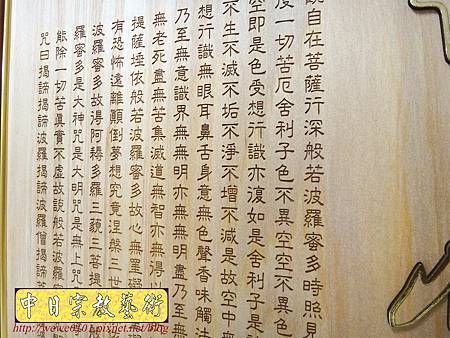 自在菩薩行深般若波羅蜜多時照見
度一切苦厄舍利子色不異空空不異色
空即是色受想行識亦復如是舍利子是
不生不滅不垢不淨不增不減是故空中
想行識無眼耳鼻舌身意無色聲香味觸法
乃至無意識界無無明亦無無明盡乃至無
無老死盡無苦集滅道無智亦無得
提薩埵依般若波羅蜜多故心無罣礙
有恐怖遠離顛倒夢想究竟涅槃三世
波羅蜜多故得阿耨多羅三藐三菩提
羅蜜多是大神咒是大明咒是無上咒
能除一切苦真實不虛故說般若波羅
咒曰揭諦揭諦波羅揭諦波羅僧揭諦
中日宗教藝術
http://yowco0101.pixnet.net/blog